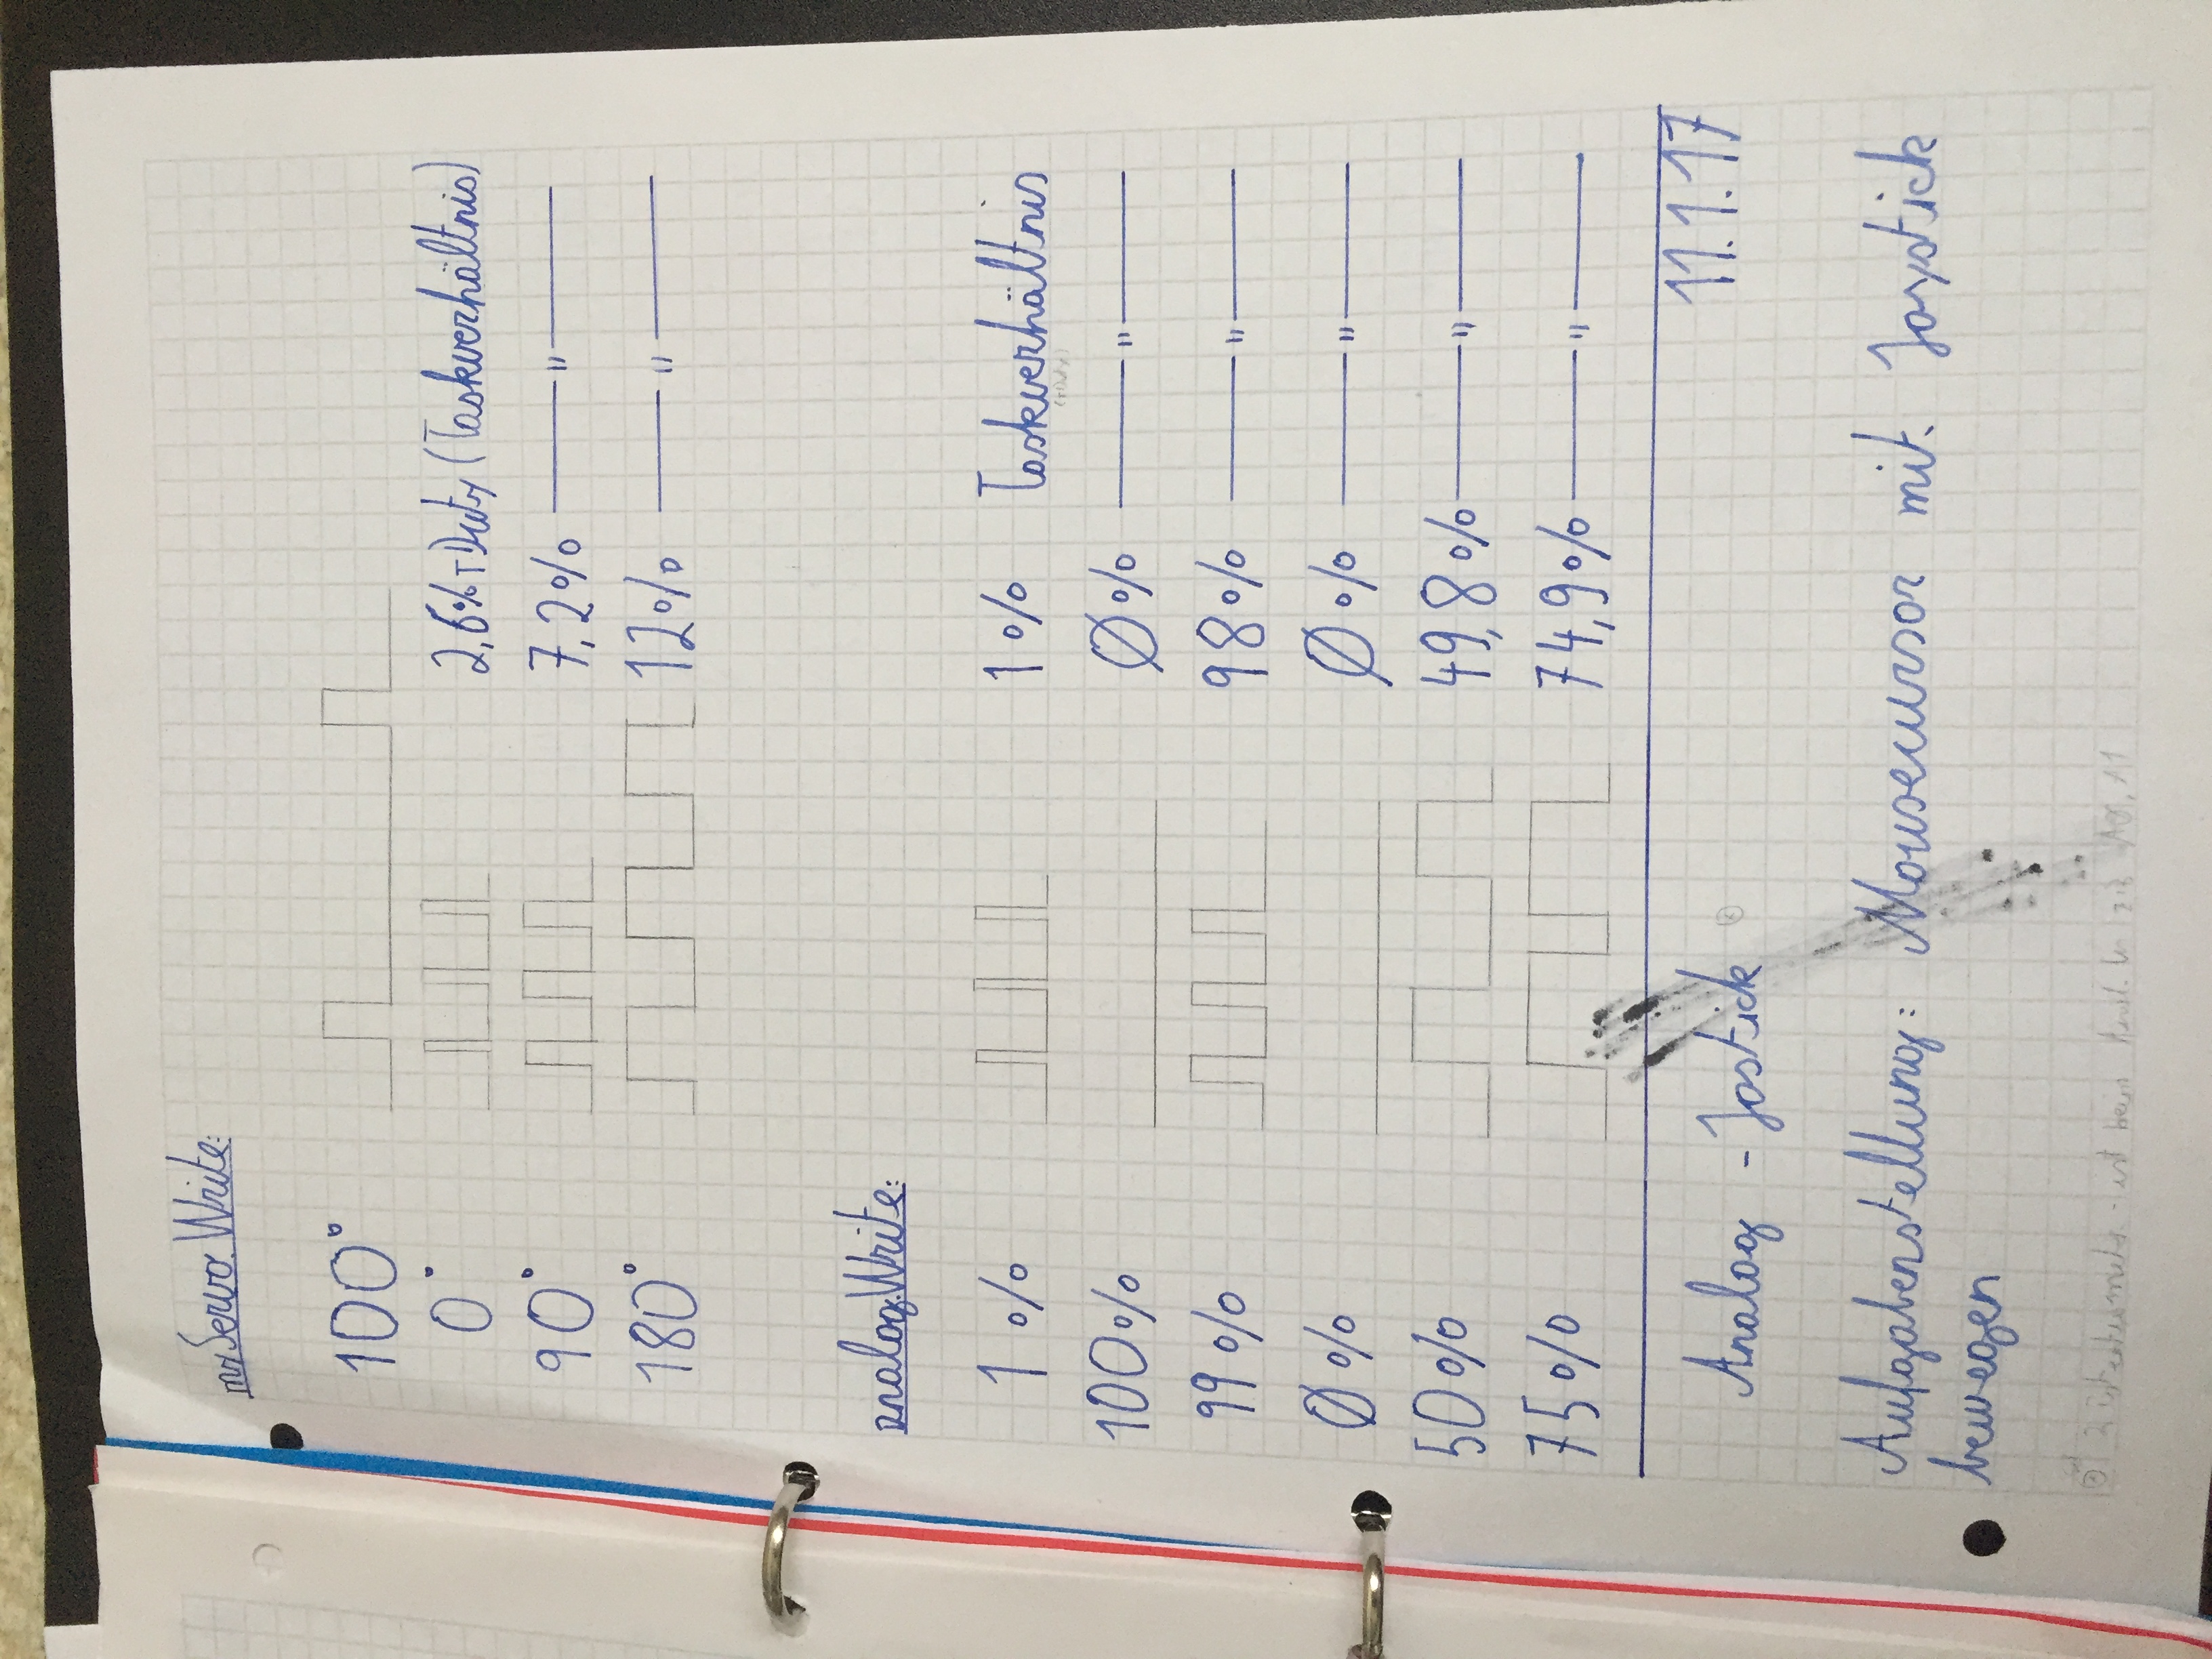 myServo.Write:
100°
0° 2,6% +Duty (Taskverhältnis)
90° 7,2% — " —
180° 12% — " —
analog.Write:
1 % 1 % Taskverhältnis
100% Ø% — " —
99% 98% — " —
Ø% Ø% — " —
50% 49,8% — " —
75% 74,9% — " —
11.1.17
Analog - Jostick
Aufgabenstellung: Mousecursor mit Joystick
bewegen